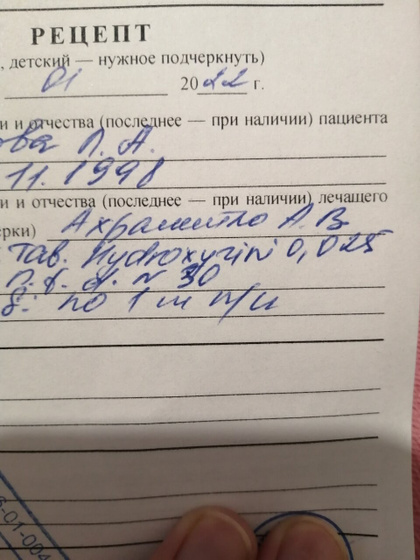 РЕЦЕПТ
, детский — нужное подчеркнуть)
01 2022 г.
и и отчества (последнее — при наличии) пациента
ова Л. А.
11. 1998
и и отчества (последнее — при наличии) лечащего
ерки)
А. В.
Tab. Hydroxyzini 0,025
D. t. d. N 30
S: по 1 т н/н
-01-004